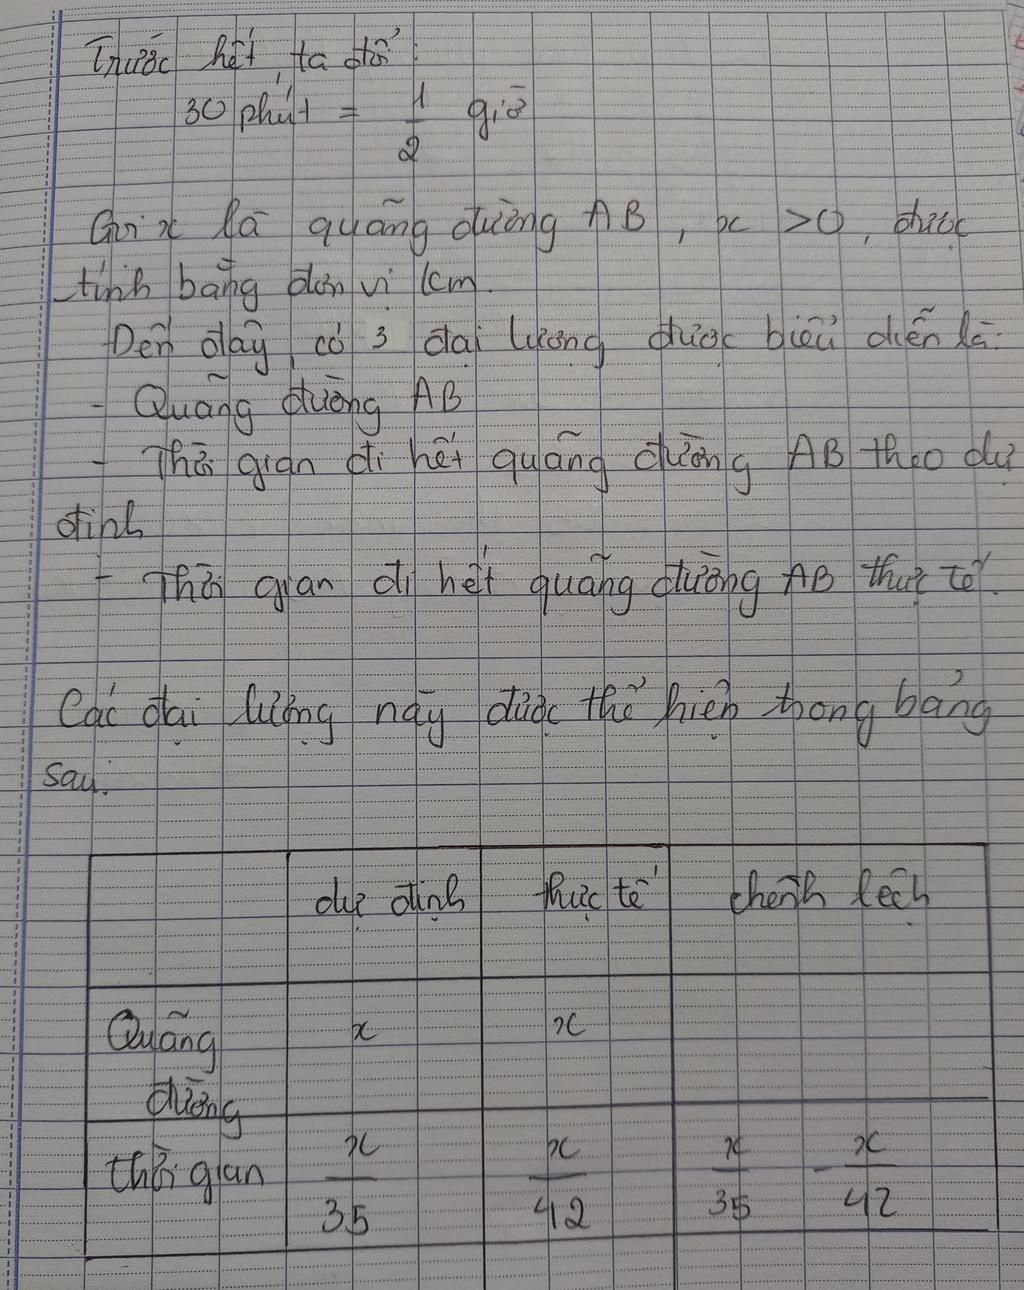 Trước hết, ta đổi:
30 phút = 1/2 giờ
Gọi x là quãng đường AB, x > 0, được
tính bằng đơn vị km.
Đến đây, có 3 đại lượng được biểu diễn là:
- Quãng đường AB
- Thời gian đi hết quãng đường AB theo dự
định
- Thời gian đi hết quãng đường AB thực tế.
Các đại lượng này được thể hiện trong bảng
sau:
dự định thực tế chênh lệch
Quãng x x
đường
thời gian x/35 x/42 x/35 - x/42